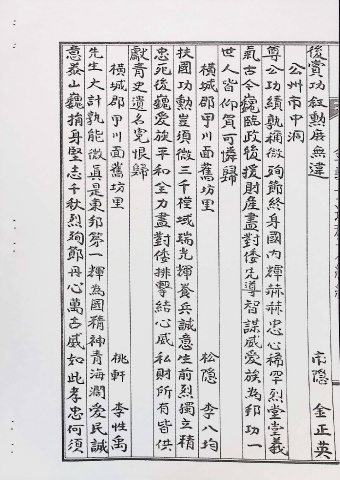 後賞功叙勳庶無違
公州市中洞 市隱 金正英
尊公功績孰稱微殉節終身國內輝赫赫忠心稀罕烈堂堂義
氣古今巍臨政後援財產盡對倭先導智謀威愛族為邦功一
世人皆仰質可憐歸
橫城郡甲川面舊坊里 松隱 李八均
扶國功勳豈須微三千槿域瑞光揮養兵誠意生前烈獨立精
忠死後巍愛族平和全力盡對倭排擊結心威私財所有皆供
獻青史遺名寃恨歸
橫城郡甲川面舊坊里 桃軒 李性禹
先生大計孰能微真是東邦第一輝為國精神青海濶愛民誠
意泰山巍捐身堅志千秋烈殉節丹心萬古威如此孝忠何須